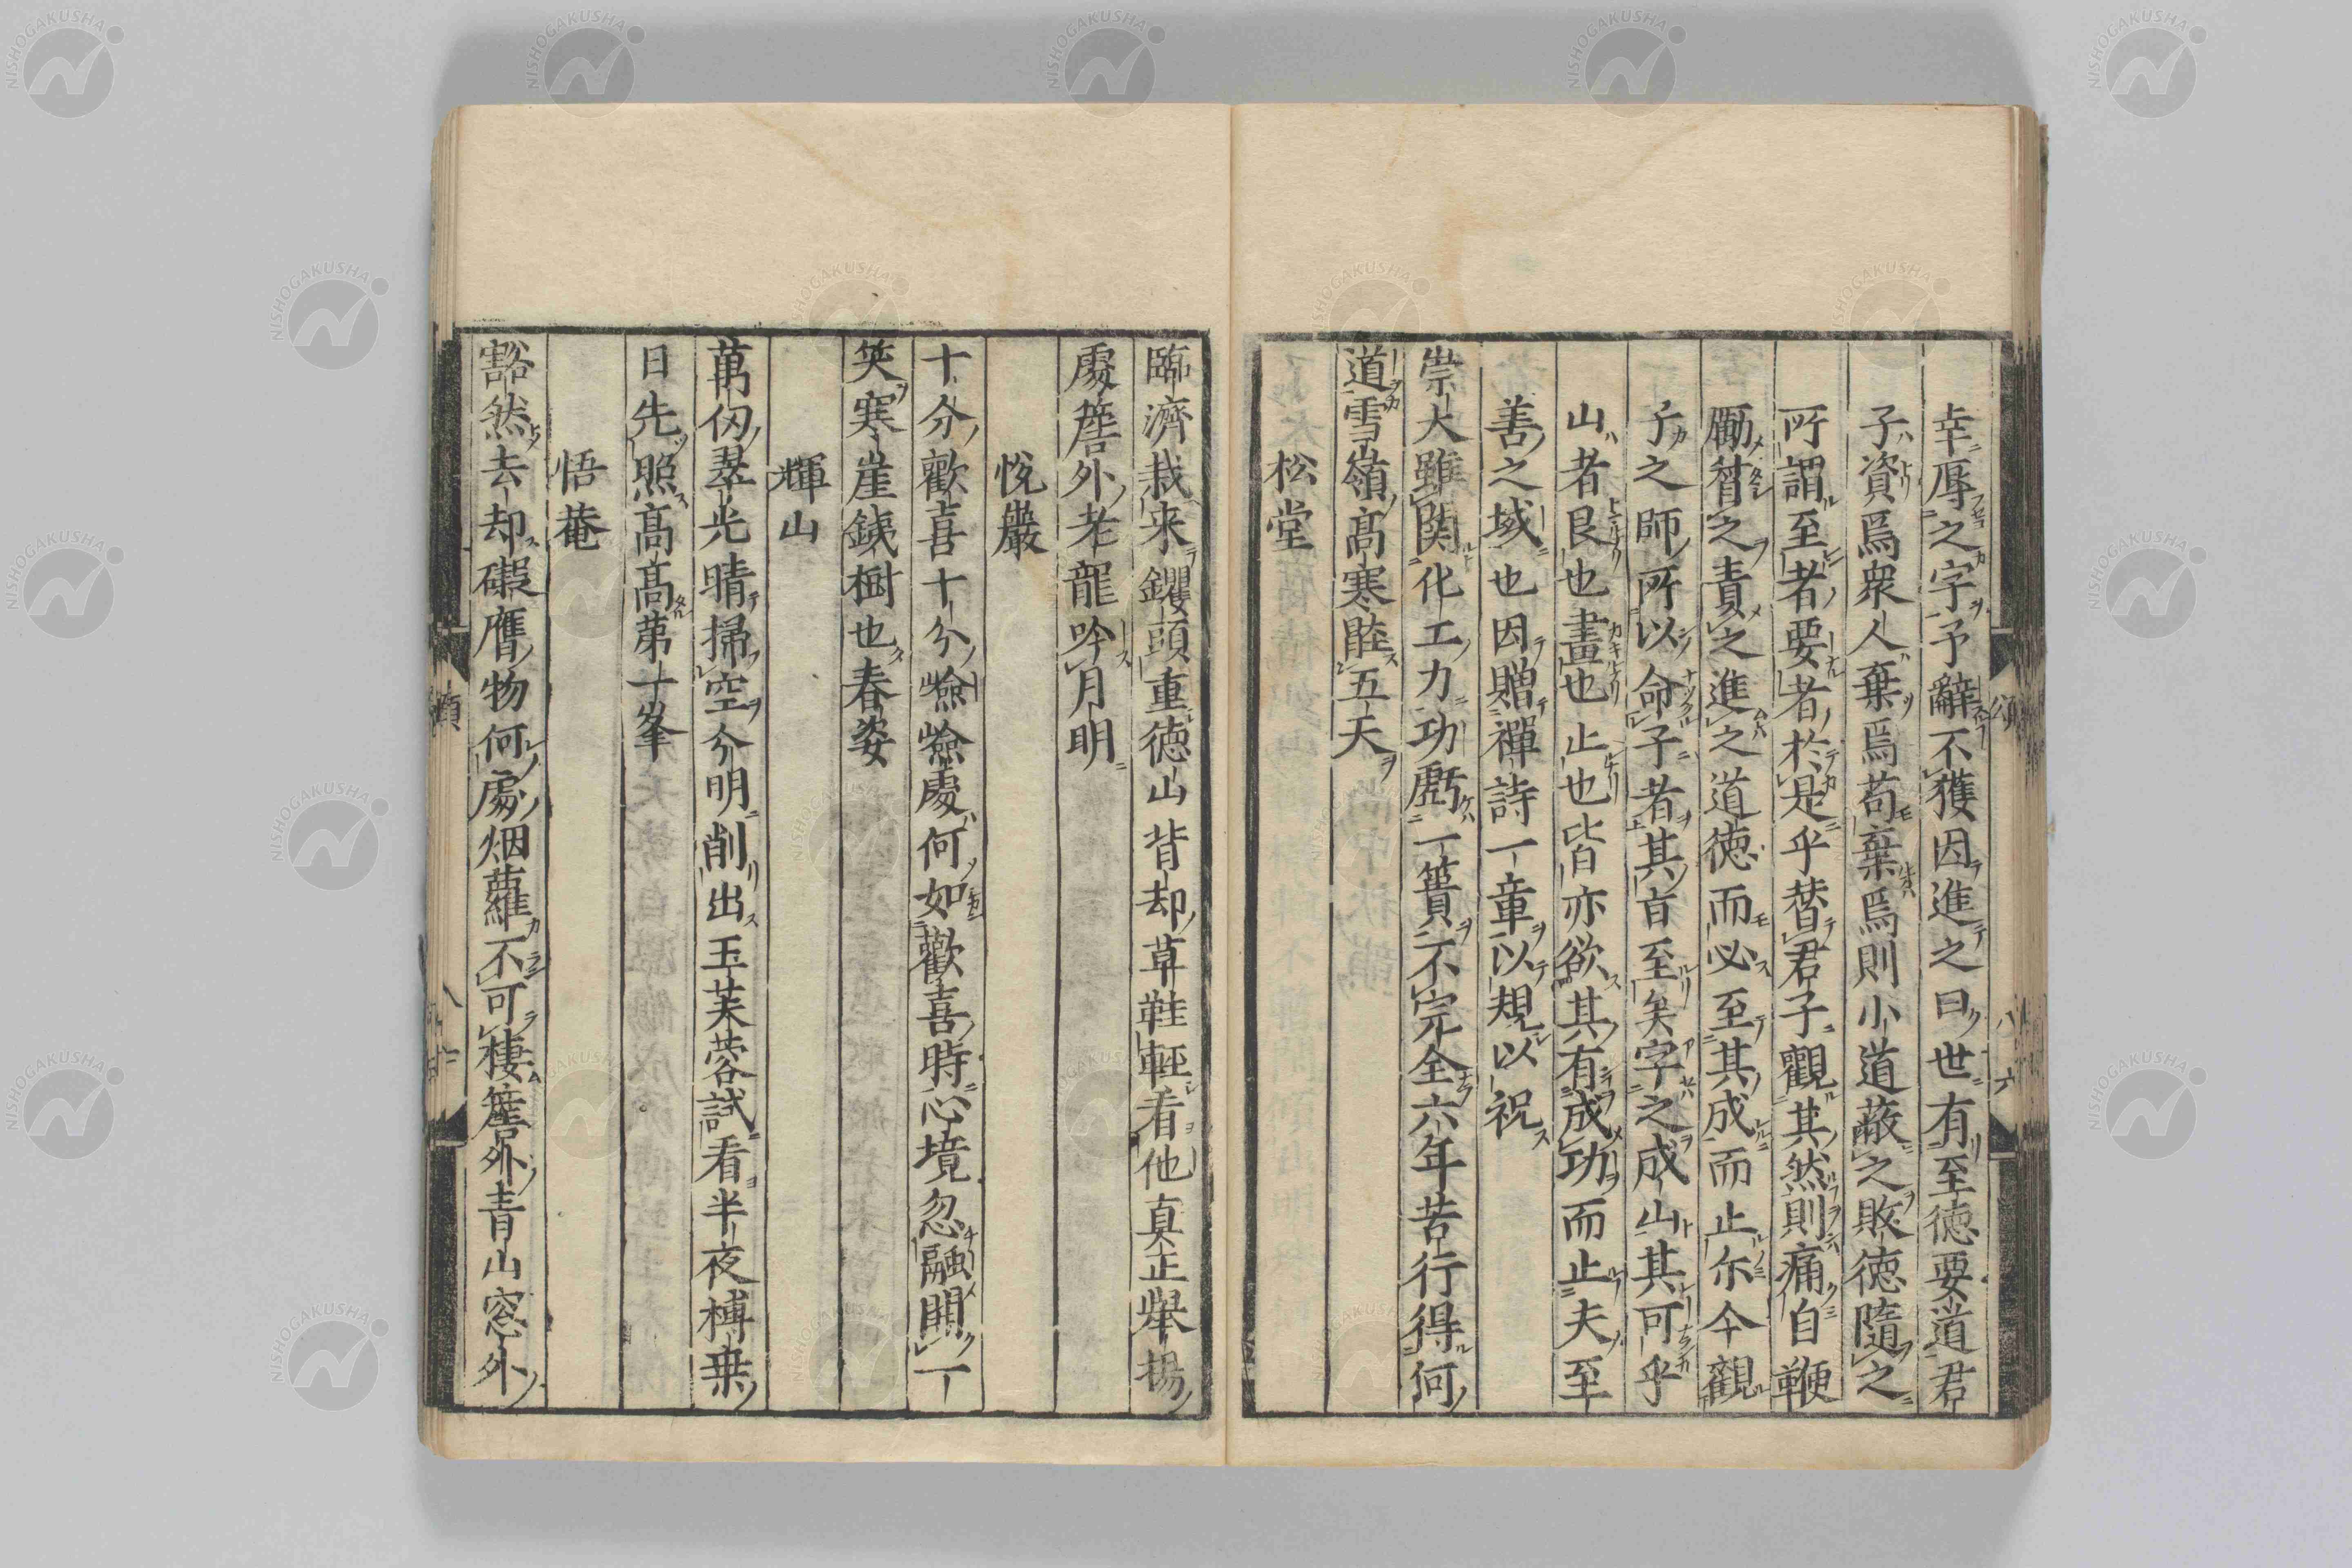 幸辱之字予辭不獲因進之曰世有至徳要道君
子資焉衆人棄焉苟棄焉則小道蔽之敗徳隨之
所謂至者要者於是乎替君子觀其然則痛自鞭
勵督之責之進之道徳而必至其成而止尓今觀
子之師所以命子者其旨至矣字之成山其可乎
山者艮也畫也止也皆亦欲其有成功而止夫至
善之域也因贈禪詩一章以規以祝
崇大雖関化工力功虧一簣不完全六年苦行得何
道雪嶺髙寒䀴五天
松堂
臨濟栽来钁頭重徳山背却草鞋軽看他真正舉揚
處簷外老龍吟月明
悅巖
十分歡喜十分嶮嶮處何如歡喜時心境忽融開一
笑寒崖鉄樹也春姿
輝山
萬仭翠光晴掃空分明削出玉芙蓉試看半夜榑桒
日先照髙髙第一峯
悟菴
豁然去却礙膺物何處烟蘿不可棲簷外青山窓外
頌
八六
NISHOGAKUSHA